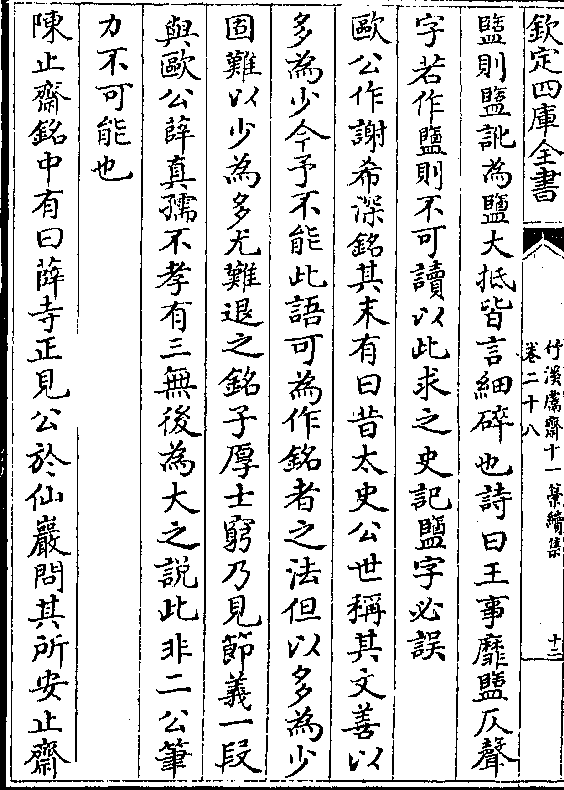 欽定四庫全書
竹溪鬳齋十一藳續集
卷二十八
十二
鹽則盬訛為鹽大抵皆言細碎也詩曰王事靡盬仄聲
字若作鹽則不可讀以此求之史記鹽字必誤
歐公作謝希深銘其末有曰昔太史公世稱其文善以
多為少今予不能此語可為作銘者之法但以多為少
固難以少為多尤難退之銘子厚士窮乃見節義一段
與歐公薛真孺不孝有三無後為大之說此非二公筆
力不可能也
陳止齋銘中有曰薛寺正見公於仙巖問其所安止齋